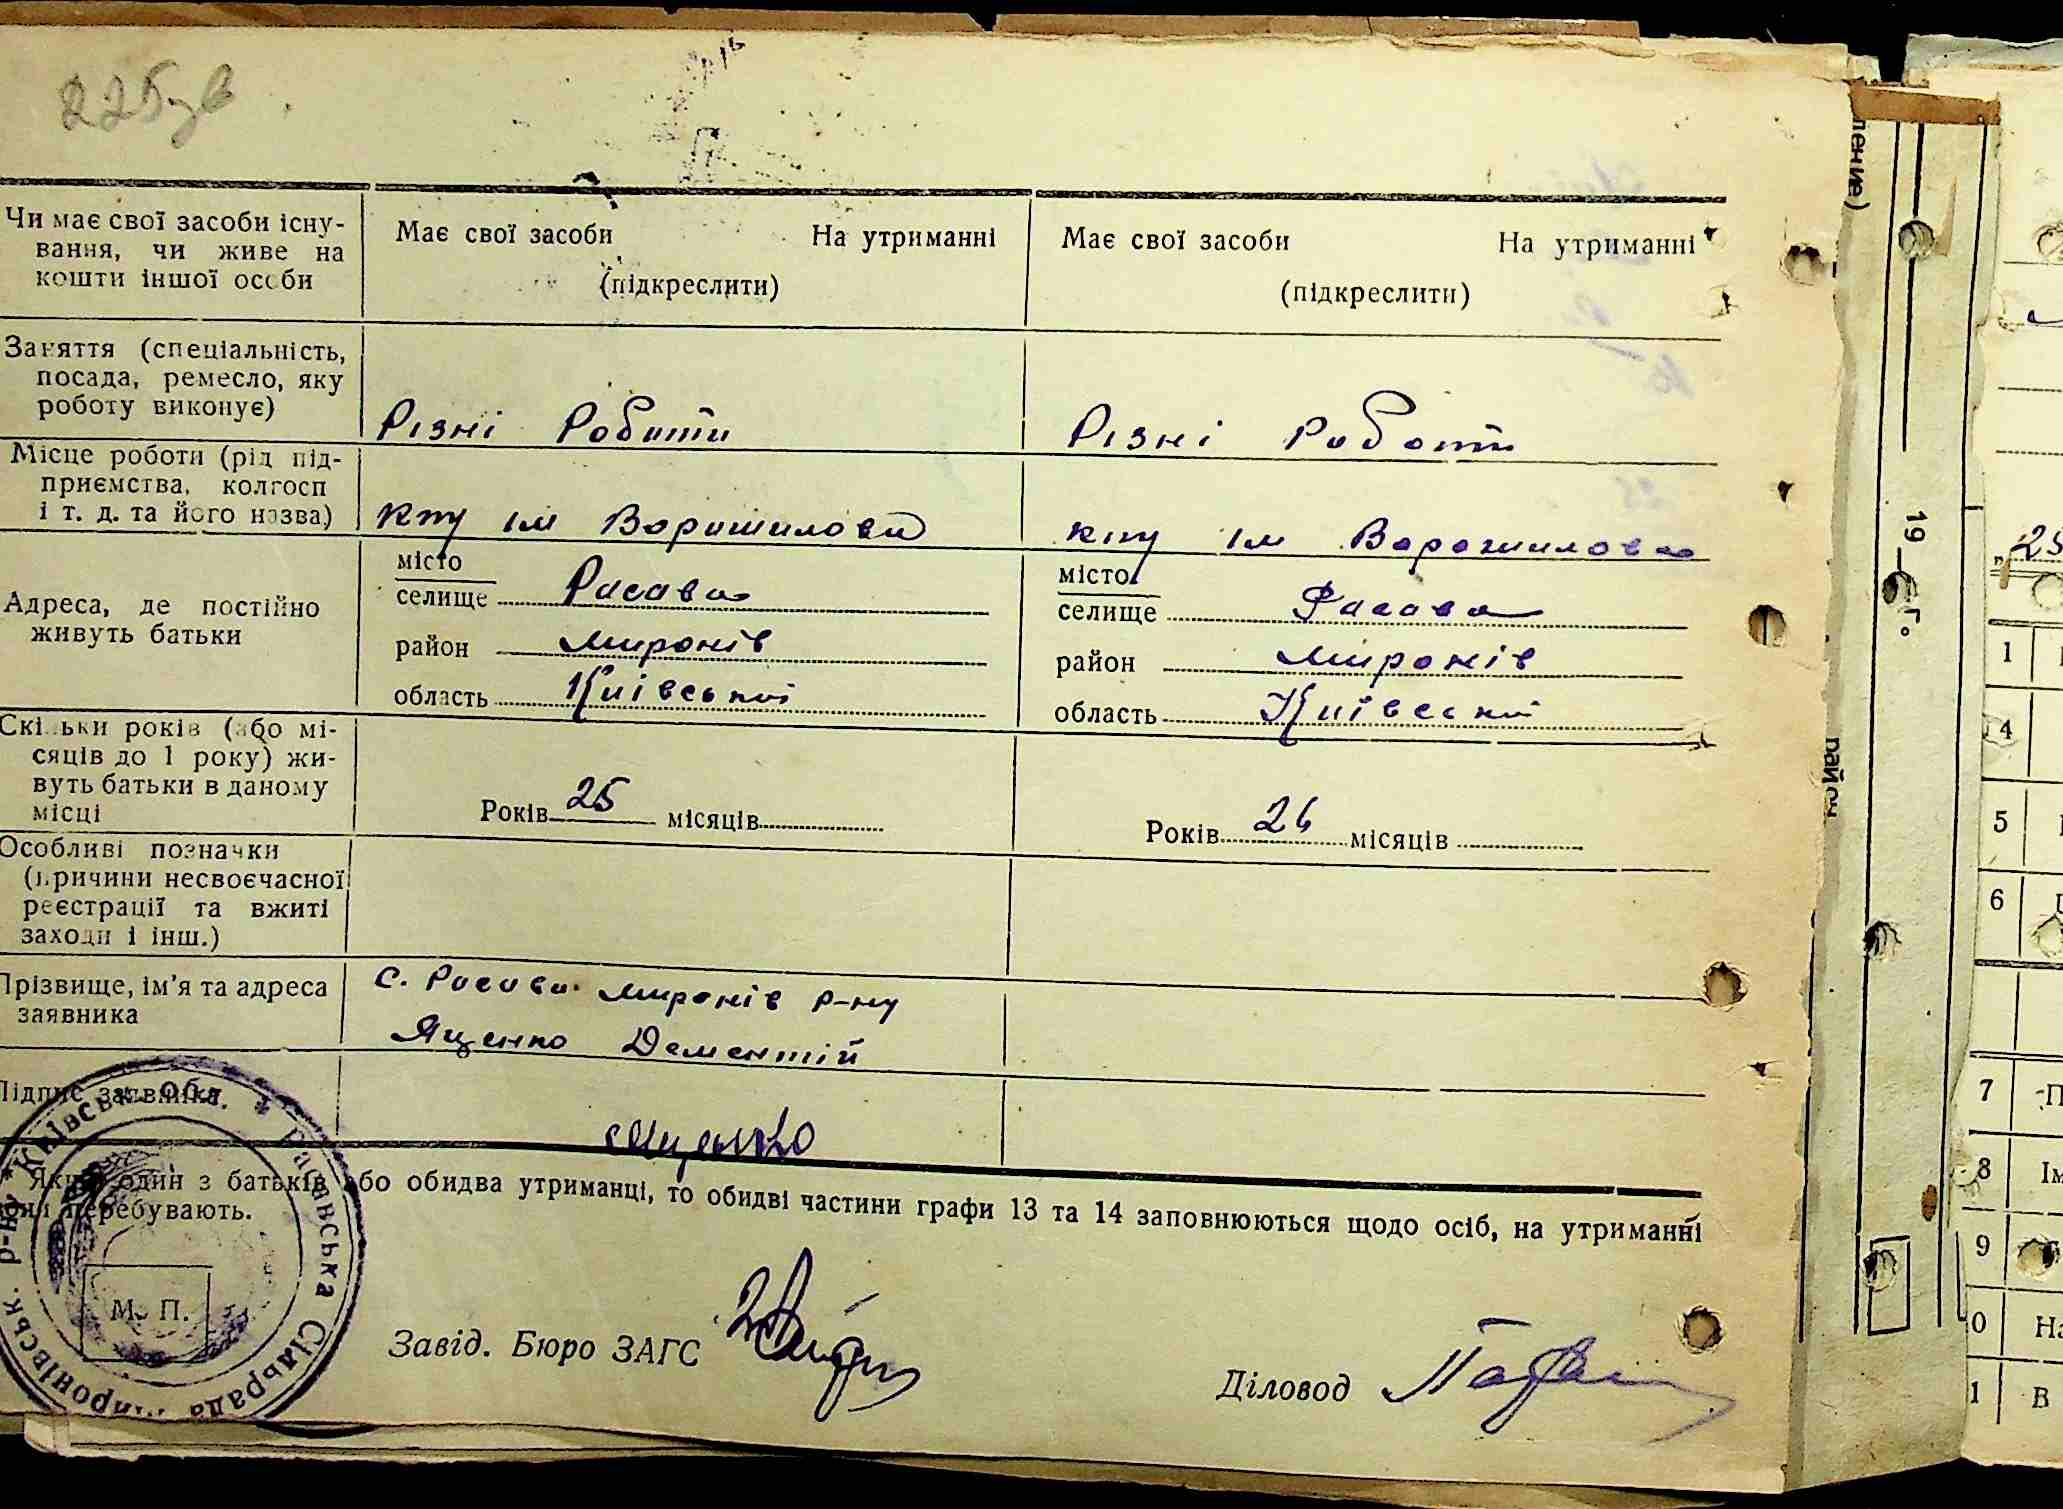 225
Чи має свої засоби існу-
вання, чи живе на
кошти іншої особи
Має свої засоби На утриманні
(підкреслити)
Має свої засоби На утриманні
(підкреслити)
Заняття (спеціальність,
посада, ремесло, яку
роботу виконує)
Різні Роботи
Різні Роботи
Місце роботи (рід під-
приємства, колгосп
і т. д. та його назва)
ім Ворошилова
ім Ворошилова
Адреса, де постійно
живуть батьки
місто
селище Расава
район Миронів
область Київській
місто
селище Расава
район Миронів
область Київській
Скільки років (або мі-
сяців до 1 року) жи-
вуть батьки в даному
місці
Років 25 місяців
Років 26 місяців
Особливі позначки
(причини несвоєчасної
реєстрації та вжиті
заходи і інш.)
Прізвище, ім'я та адреса
заявника
с. Расава Миронів р-ну
Яценко Дементій
Підпис заявника
Яценко
Якщо один з батьків або обидва утриманці, то обидві частини графи 13 та 14 заповнюються щодо осіб, на утриманні
вони перебувають.
Расавська Сільрада Миронівськ. р-ну * Київськ. Обл. *
М. П.
Завід. Бюро ЗАГС
Діловод
ление)
19 г.
район
25
1
4
5
6
7 П
8 Ім
9
0 На
1 В